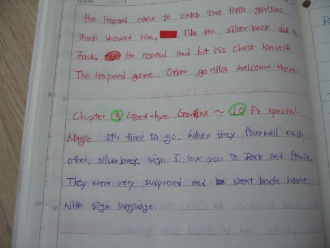 the leopard came to catch two little gorillas.
Jack showed him, like the silverback did
Jack, He roared and hit his chest himself.
The leopard gone. Other gorillas welcom them.
Chapter 9 Good-bye Gorillas ~ 10 A special
Magic It's time to go. When they farewell each
other, silverback sign I love you to Jack and Annie.
They were very surprised and went back home
with sign language.